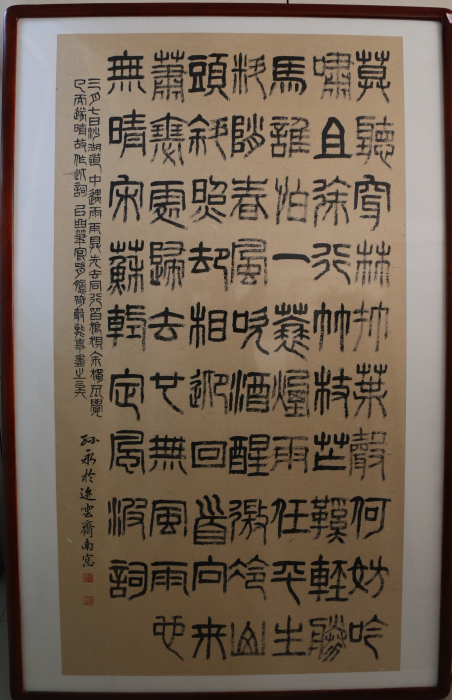 莫聽穿林打葉聲何妨吟
嘯且徐行竹杖芒鞵輕勝
馬誰怕一蓑煙雨任平生
料峭春風吹酒醒微冷山
頭斜照却相迎回首向來
蕭瑟處歸去也無風雨也
無晴宋蘇軾定風波詞
三月七日沙湖道中遇雨雨具先去同行皆狼狽余獨不覺
已而遂晴故作此詞
孫永於雲齋南窗